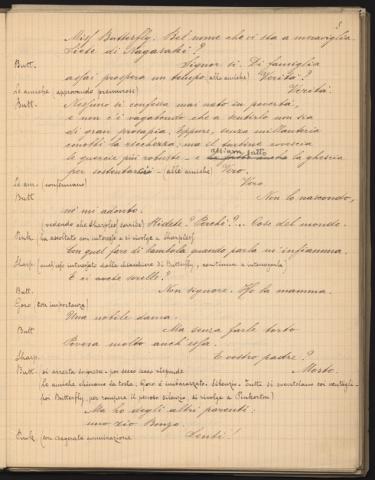 3
Miss Butterfly. Bel nome che vi sta a meraviglia.
Siete di Nagasaki?
Butt. Signor si. Di famiglia
assai prospera un tempo. (alle amiche) Verità?
Le amiche (approvando premurose) Verità.
Butt. Nessuno si confessa mai nato in povertà,
e non c'è vagabondo che a sentirlo non sia
di gran prosapia. Eppure, senza millanteria
conobbi la ricchezza; ma il turbine rovescia
le quercie più robuste - e abbiam fatto la ghescia
per sostentarci - (alle amiche) Vero.
Le am. (confermano) Vero.
Butt Non lo nascondo,
nè mi adonto.
(vedendo che Sharpless sorride) Ridete? Perchè?... Cose del mondo.
Pink. (ha ascoltato con interesse e si rivolge a Sharpless)
Con quel fare di bambola quando parla mi infiamma.
Sharp. (anch'esso interessato dalle chiacchiere di Butterfly, continua a interrogarla)
E ci avete sorelle?
Butt. Non signore. Ho la mamma.
Goro (con importanza)
Una nobile dama.
Butt Ma senza farle torto
Povera molto anch'essa.
Sharp. E vostro padre?
Butt. si arresta sorpresa - poi secco secco risponde Morto.
(Le amiche chinano la testa. Goro è imbarazzato. Silenzio. Tutte si sventolano coi ventagli -
poi Butterfly, per rompere il penoso silenzio, si rivolge a Pinkerton)
Ma ho degli altri parenti:
uno zio Bonzo.
Pink (con esagerata ammirazione Senti!